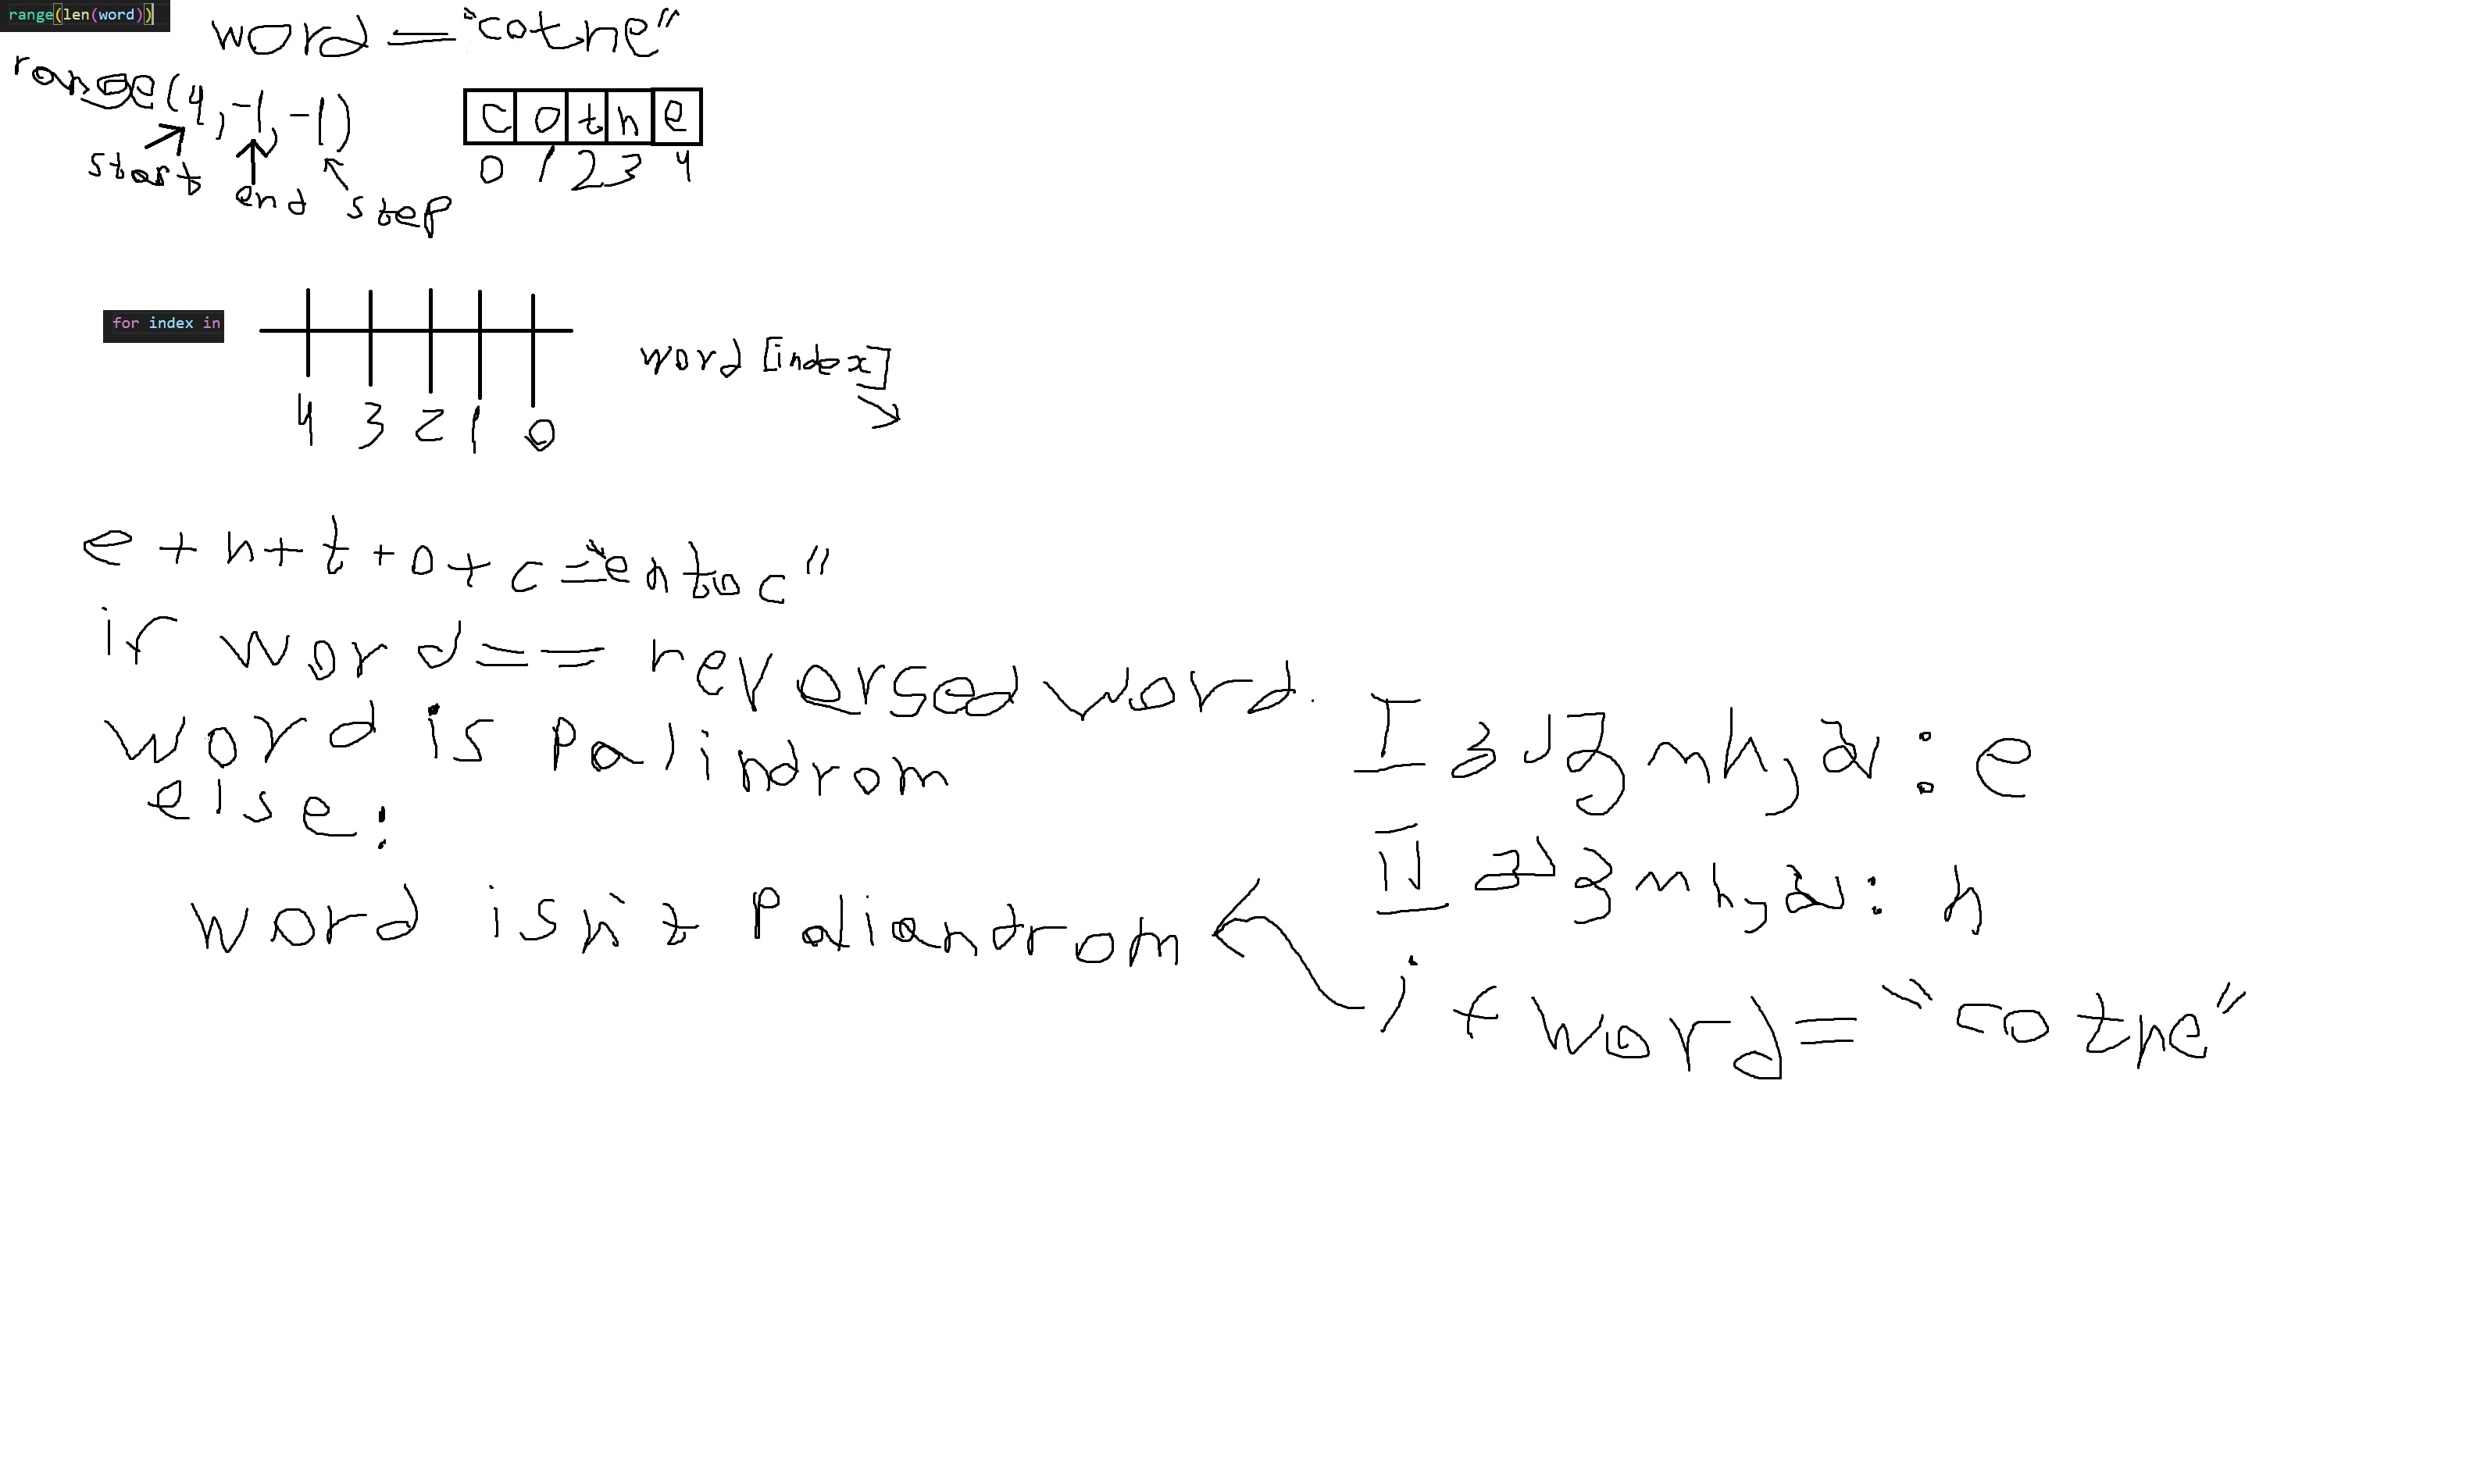 range(len(word))
word = "cotne"
range(4,-1,-1)
start end step
c o t n e
0 1 2 3 4
for index in
4 3 2 1 0
word [index]
e + n + t + o + c = "entoc"
if word == reversed word.
word is Palindrom
else:
word isn't Paliandrom
I : e
II : n
if word = "cotne"